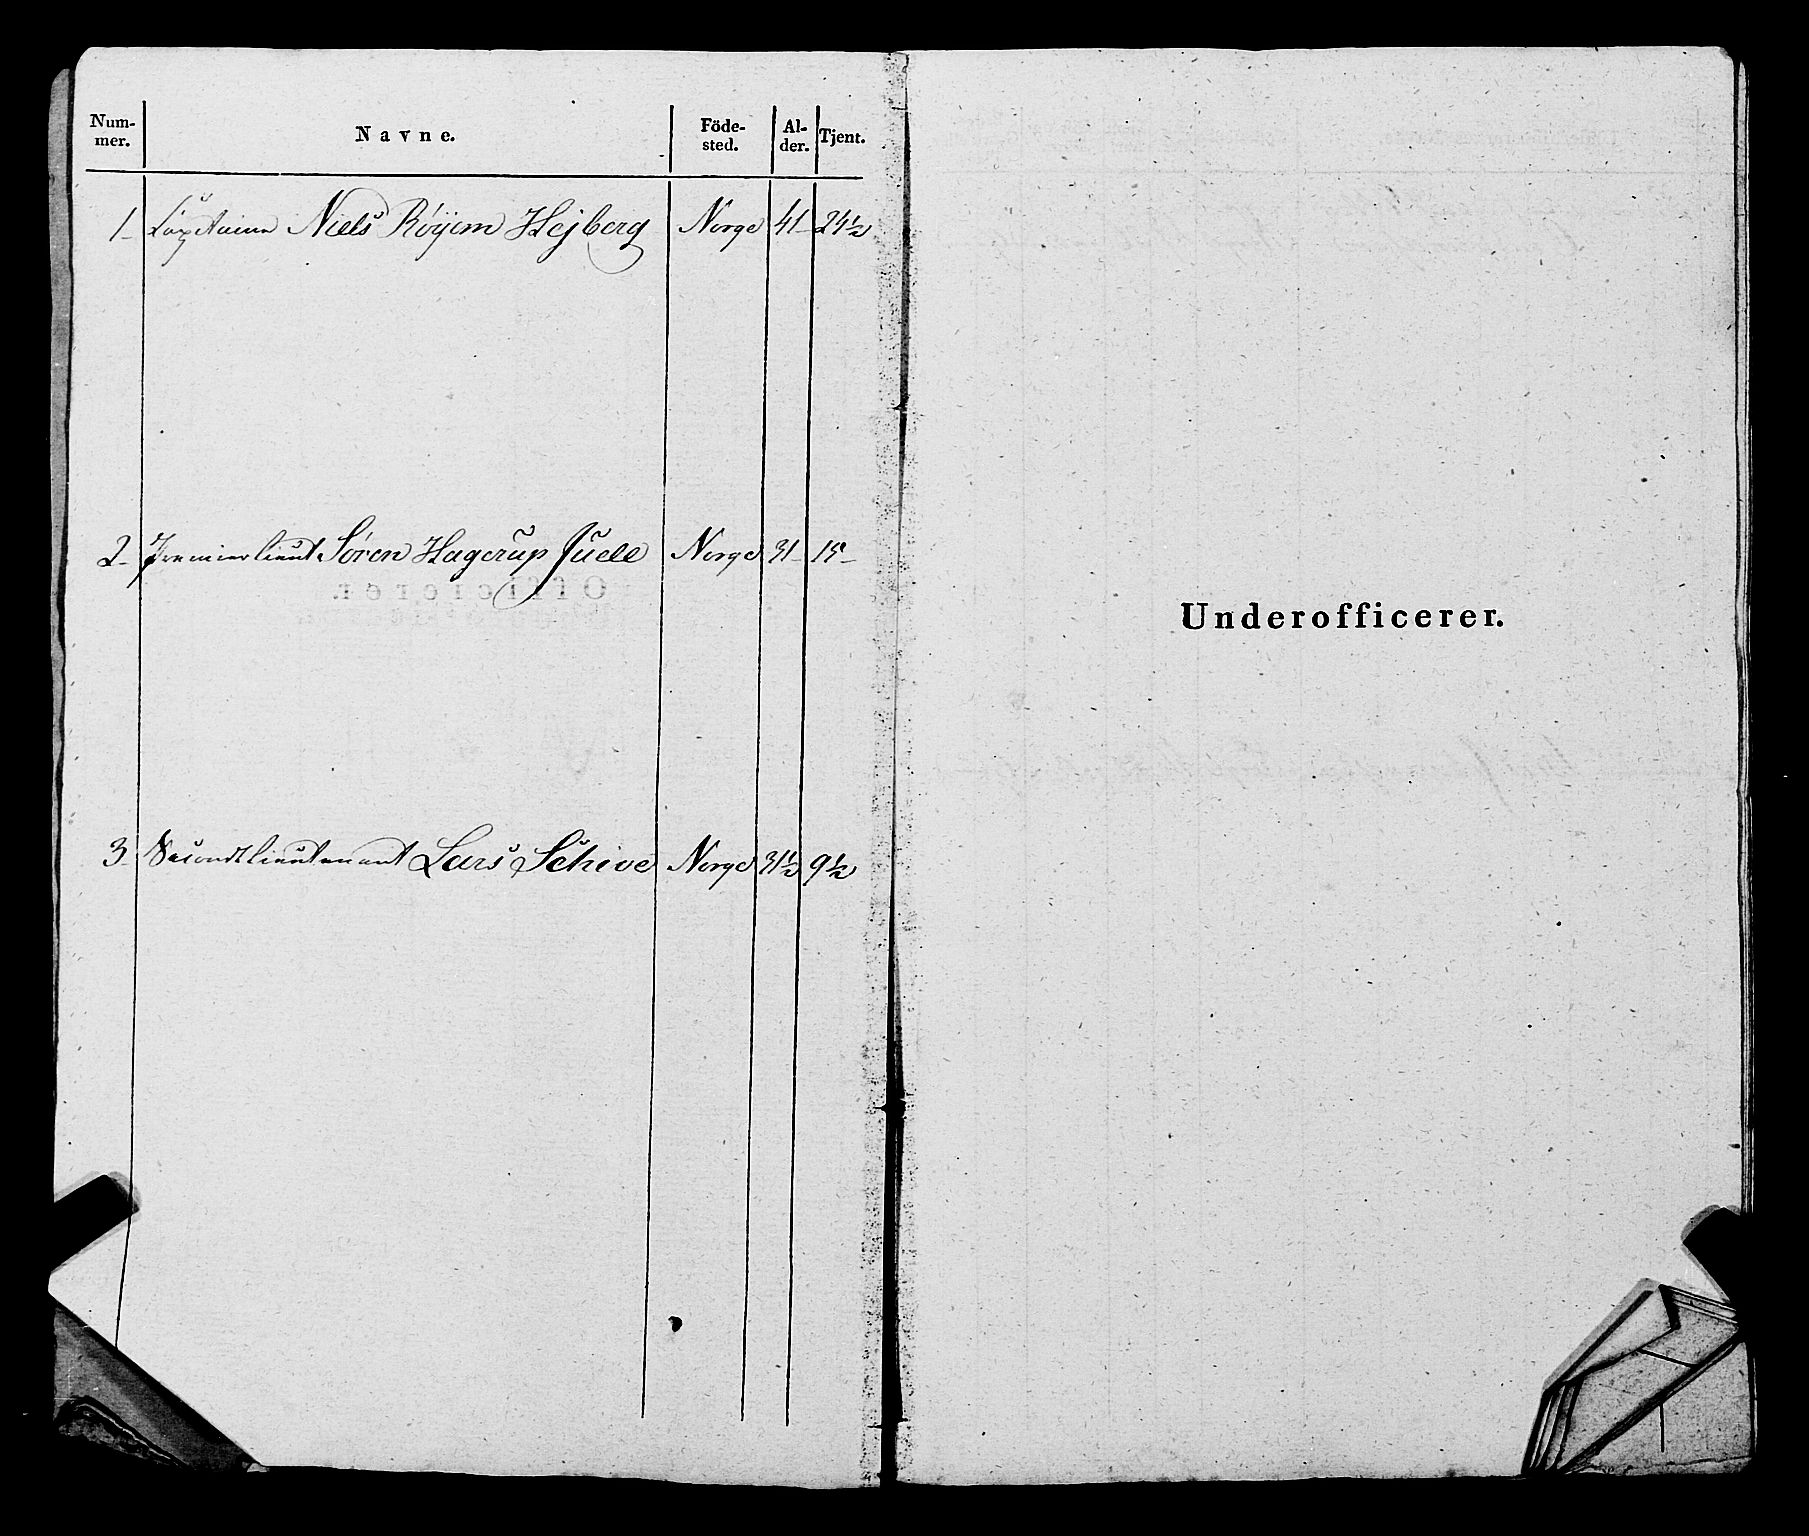 Num-
mer.
Navne.
Föde-
sted.
Al-
der.
Tjent.
1- Capitaine Niels Röyem Hejberg Norge 41- 24½
2- Premierlieut Søren Hagerup Juell Norge 31- 15-
3 Secondtlieutenant Lars Schive Norge 31½ 9½
Officierer.
Underofficerer.